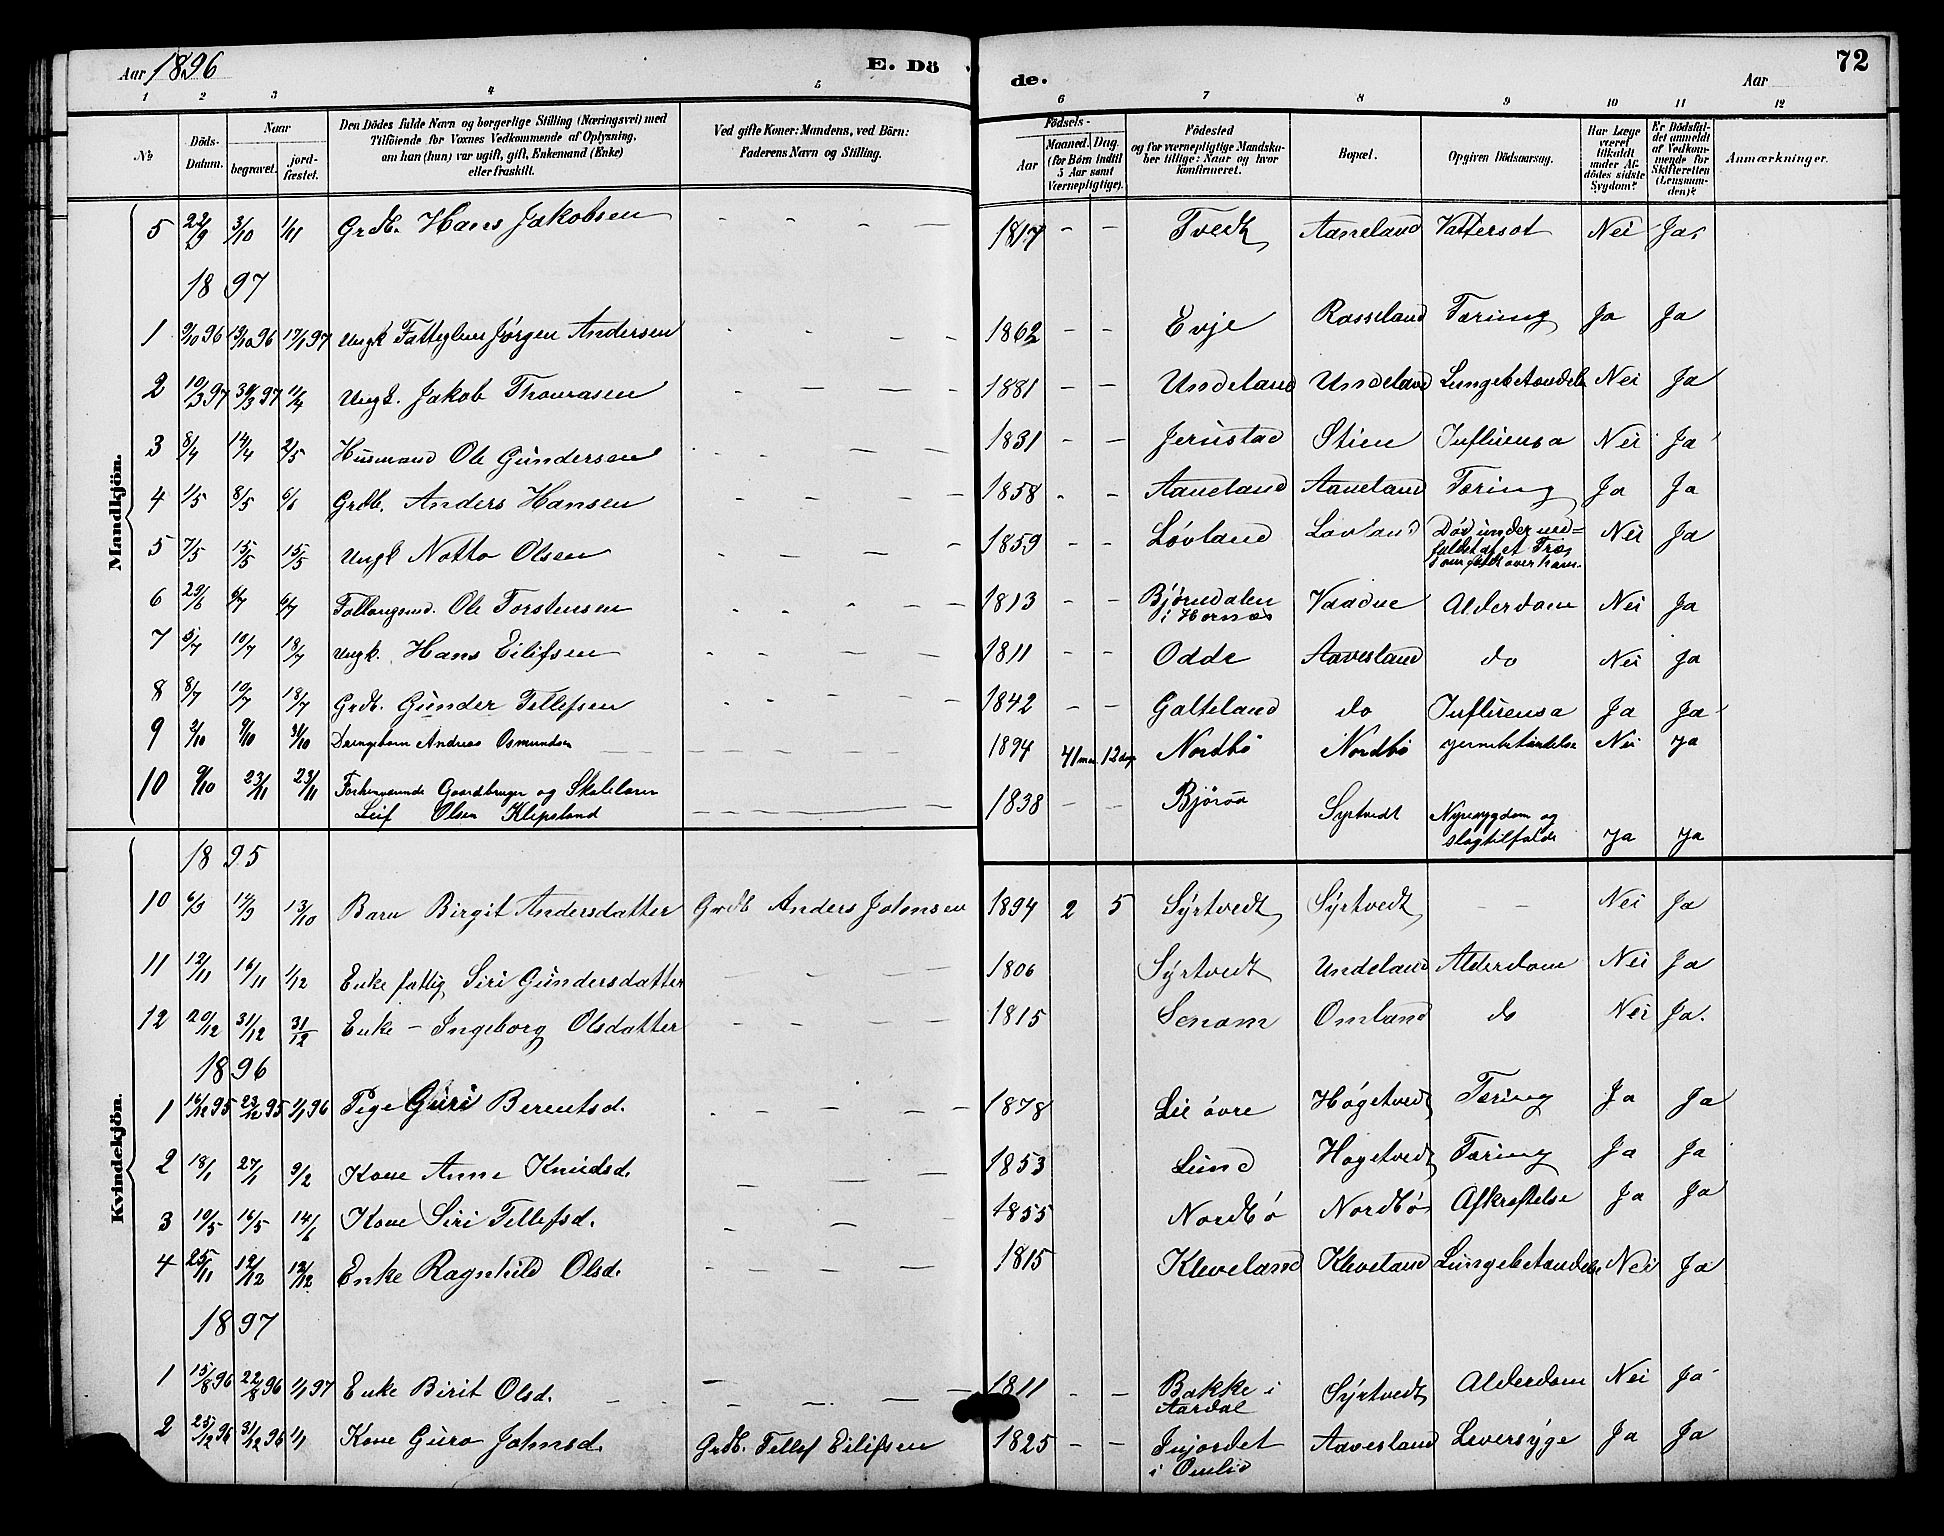 Aar 1896 E. Dö de. Aar 72
1 2 3 4 5 6 7 8 9 10 11 12
No Döds-Datum. Naar begravet. jord-fæstet. Den Dödes fulde Navn og borgerlige Stilling (Næringsvei) med Tilföiende for Voxnes Vedkommende af Oplysning, om han (hun) var ugift, gift, Enkemand (Enke) eller fraskilt. Ved gifte Koner: Mandens, ved Börn: Faderens Navn og Stilling. Födsels- Aar Maaned. Dag. (for Börn indtil 5 Aar samt Værnepligtige). Födested og for værnepligtige Mandskaber tillige: Naar og hvor konfirmeret. Bopæl. Opgiven Dödsaarsag. Har Læge været tilkaldt under Afdödes sidste Sygdom? Er Dödsfaldet anmeldt af Vedkommende for Skifteretten (Lensmanden)? Anmærkninger.
Mandkjön.
5 22/9 3/10 1/11 Grdb. Hans Jakobsen - - - - 1817 - - Tvedt Aaneland Vattersot Nei Ja.
1897
1 9/10 96 13/10 96 17/1 97 Ungk Fattiglem Jörgen Andersen - - - - 1862 - - Evje Rosseland Tæring Ja Ja
2 10/3 97 30/3 97 1/4 Ungk. Jakob Thomasen - - - - 1881 - - Undeland Undeland Lungebetændelse Nei Ja
3 8/4 14/4 2/5 Husmand Ole Gundersen - - - - 1831 - - Jerustad Stien Influensa Nei Ja
4 1/5 8/5 6/6 Grdb. Anders Hansen - - - - 1858 - - Aaneland Aaneland Tæring Ja Ja
5 7/5 15/5 15/5 Ungk Notto Olsen - - - - 1859 - - Lövland Lövland Död under ned-
faldet af et Træ,
som faldt over ham. Nei Ja
6 29/6 6/7 6/7 Ole Torstensen - - - - 1813 - - Björndalen
i Hornæs Vaadne Alderdom Nei Ja
7 5/7 10/7 18/7 Ungk. Hans Eilifsen - - - - 1811 - - Odde Aavesland do Nei Ja
8 8/7 10/7 18/7 Grdb. Gunder Tellefsen - - - - 1842 - - Galteland do Influensa Ja Ja
9 2/10 9/10 31/10 Drengebarn Andreas Osmundsen - - - - 1894 12 dage Nordbö Nordbö Nei Ja
10 9/10 23/11 23/11 Forhenværende Gaardbruger og Skolelærer
Leif Olsen Klepsland - - - - 1838 - - Björaa Syrtvedt Nyresygdom og
slagtilfælde Ja Ja
Kvindekjön.
1895
10 6/9 14/9 13/10 Barn Birgit Andersdatter Grdb Anders Johnsen 1894 2 5 Syrtvedt Syrtvedt - - Nei Ja
11 12/11 16/11 1/12 Enke fattig Siri Gundersdatter - - - 1806 Syrtvedt Undeland Alderdom Nei Ja
12 20/12 31/12 31/12 Enke - Ingeborg Olsdatter - - - - 1815 Senum Omland do Nei Ja.
1896
1 16/12 95 23/12 95 1/1 96 Pige Guri Berentsd. - - - - 1878 Lie övre Högetvedt Tæring Ja Ja
2 18/1 27/1 9/2 Kone Anne Knudsd. - - - 1853 Lund Högetvedt Tæring Ja Ja
3 10/5 16/5 14/6 Kone Siri Tellefsd. - - - 1855 Nordbö Nordbö Afkræftelse Ja Ja
4 25/11 12/12 12/12 Enke Ragnhild Olsd. - - - - 1815 Kleveland Kleveland Lungebetændelse Nei Ja
1897
1 15/8 96 22/8 96 1/1 97 Enke Birit Olsd. - - - - 1811 - - Bakke i
Aardal Syrtvedt Alderdom Nei Ja
2 25/12 96 31/12 96 1/1 Kone Guro Johnsd. Grdb. Tellef Eilifsen 1825 - - Injordet
i Omlid Aavesland Leversyge Ja Ja